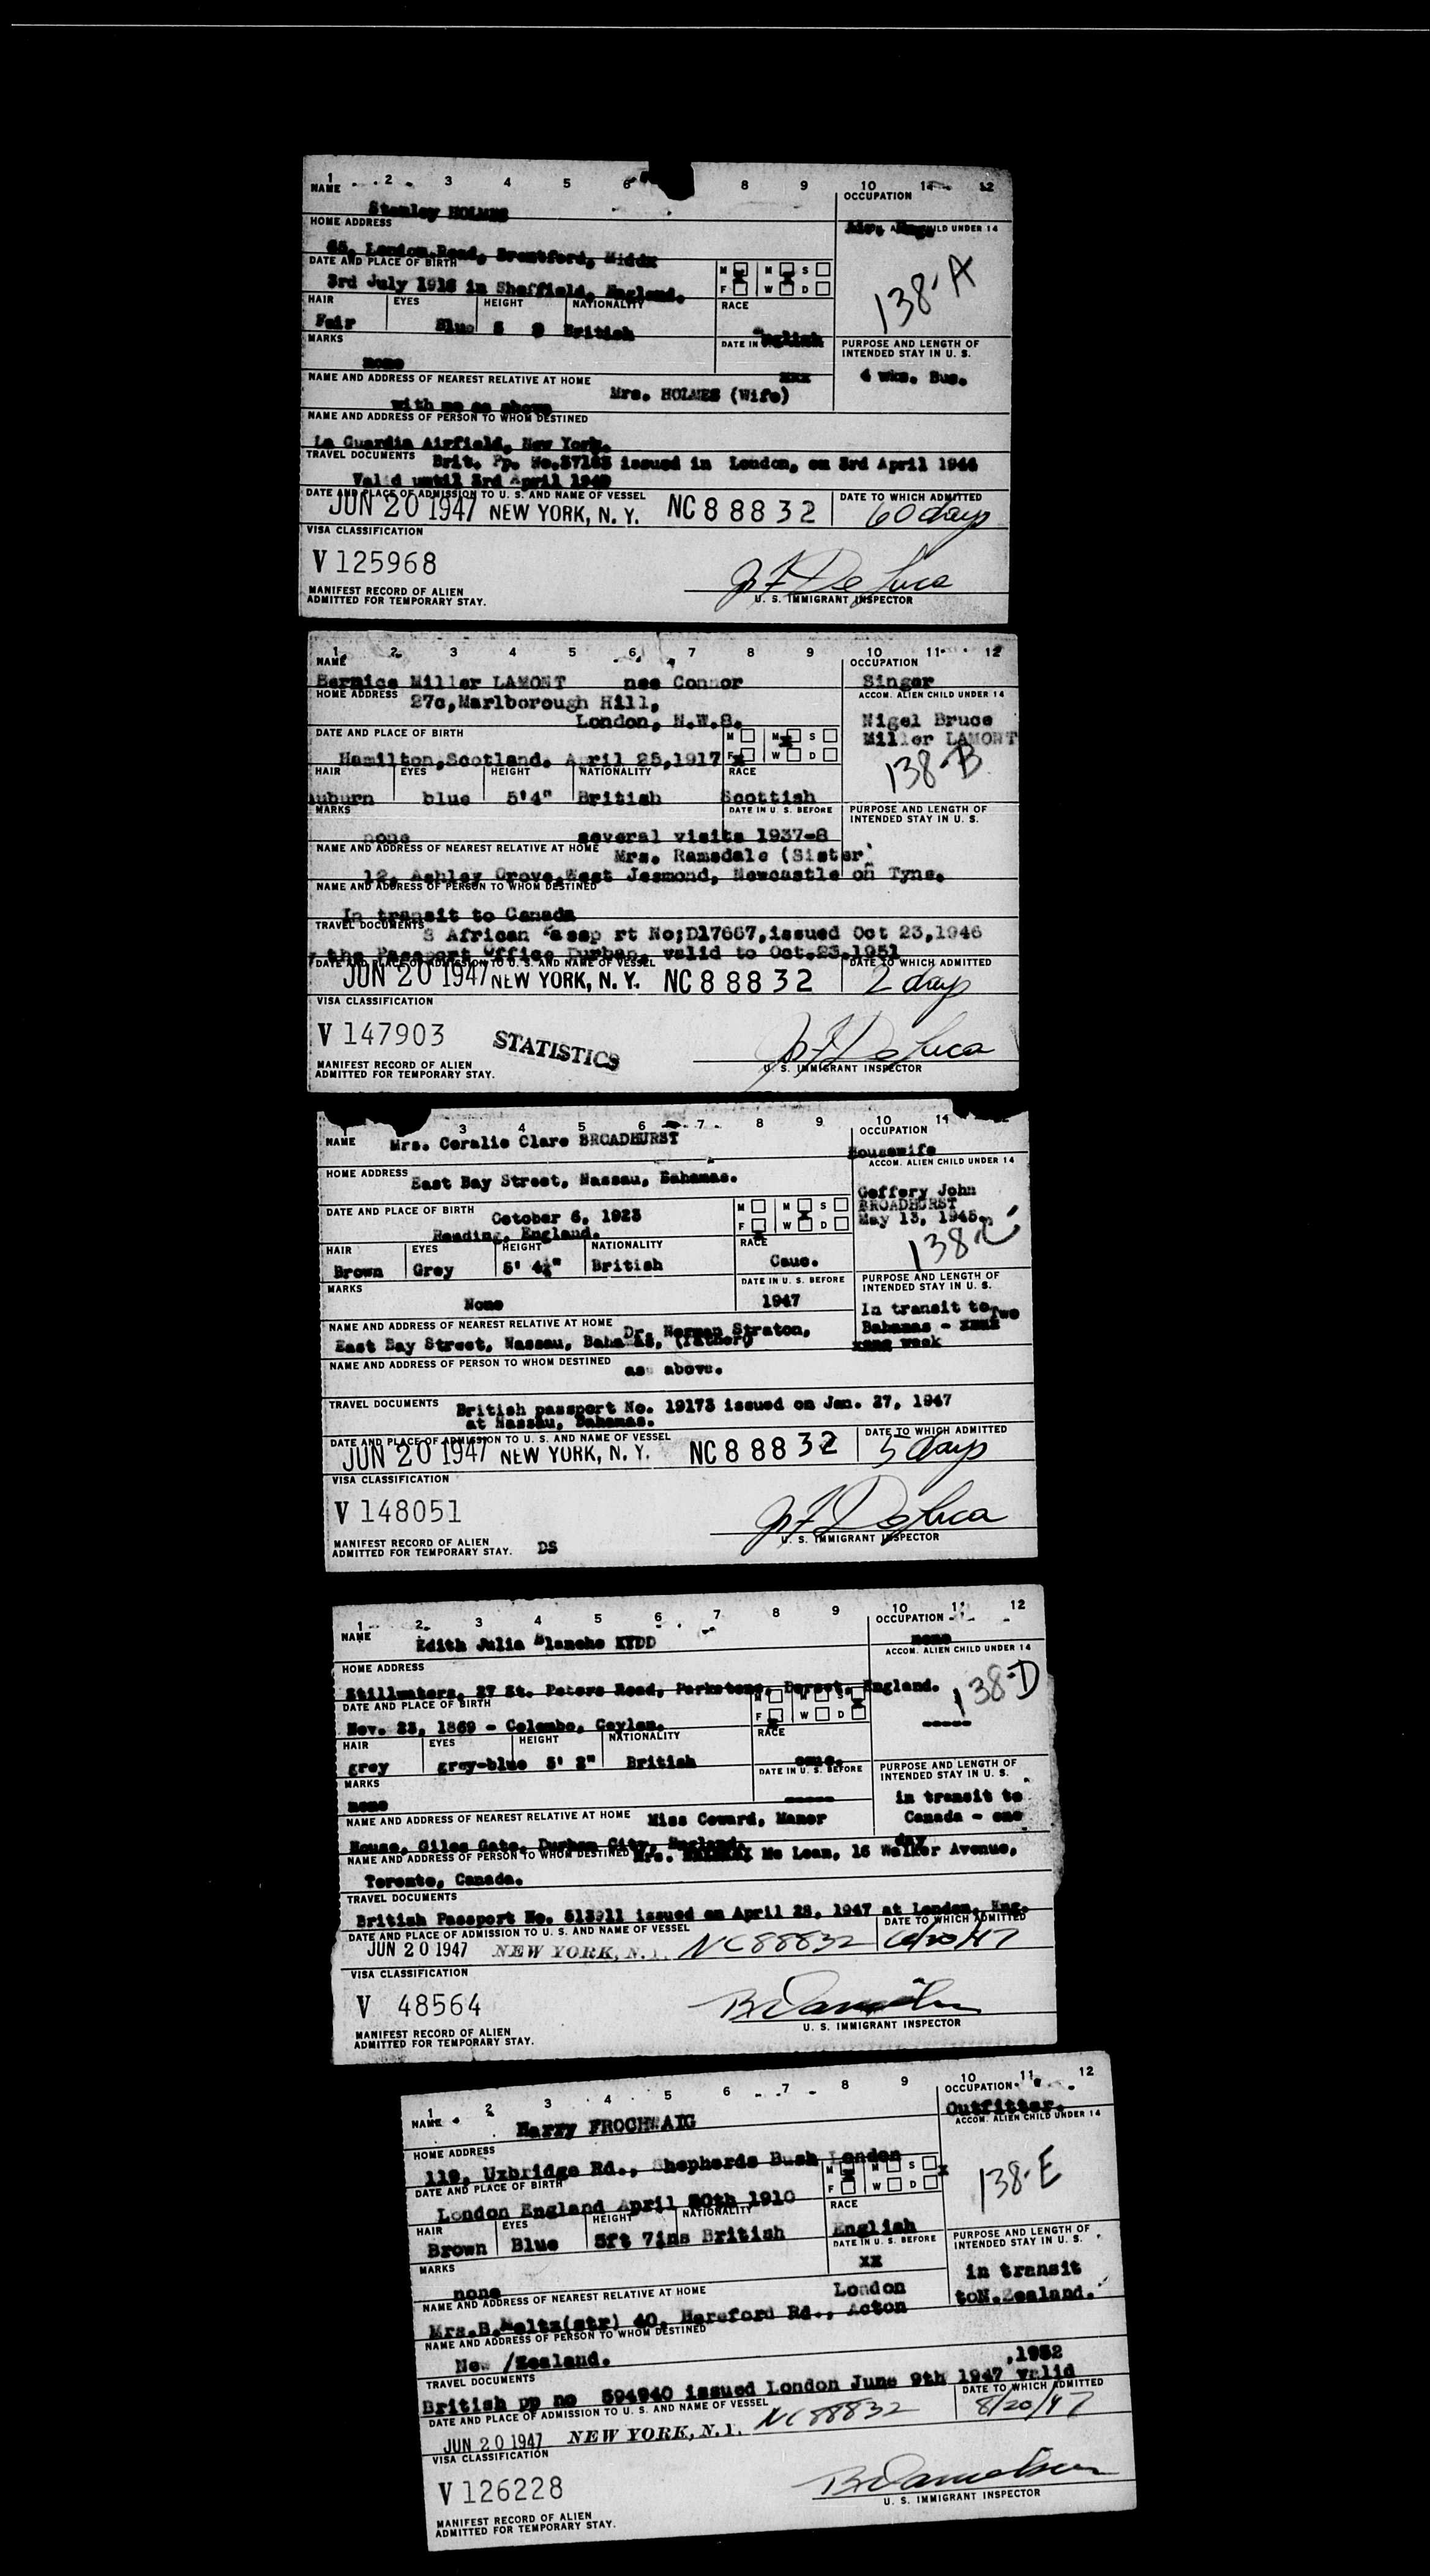 1 2 3 4 5 6 8 9 10 11 12
NAME
OCCUPATION
Stanley HOLMES
HOME ADDRESS
CHILD UNDER 14
65, London Road, Brentford, Middx
DATE AND PLACE OF BIRTH
M M S
3rd July 1918 in Sheffield, England.
F W D
138-A
HAIR EYES HEIGHT NATIONALITY RACE
Fair Blue 5 9 British English
MARKS
DATE IN
PURPOSE AND LENGTH OF
INTENDED STAY IN U. S.
none
xxx
4 wks. Bus.
NAME AND ADDRESS OF NEAREST RELATIVE AT HOME
Mrs. HOLMES (Wife)
with me as above
NAME AND ADDRESS OF PERSON TO WHOM DESTINED
La Guardia Airfield, New York.
TRAVEL DOCUMENTS
Brit. Pp. No. issued in London, on 3rd April 1944
Valid until 3rd April 1949
DATE AND PLACE OF ADMISSION TO U. S. AND NAME OF VESSEL
DATE TO WHICH ADMITTED
JUN 20 1947 NEW YORK, N. Y. NC 8 8 8 3 2 60 days
VISA CLASSIFICATION
V 125968
J F De Luca
MANIFEST RECORD OF ALIEN
ADMITTED FOR TEMPORARY STAY.
U. S. IMMIGRANT INSPECTOR
1 2 3 4 5 6 7 8 9 10 11 12
NAME
OCCUPATION
Bernice Miller LAMONT nee Connor
Singer
HOME ADDRESS
ACCOM. ALIEN CHILD UNDER 14
27c, Marlborough Hill,
London, N.W.8.
Nigel Bruce
Miller LAMONT
DATE AND PLACE OF BIRTH
M M S
Hamilton, Scotland. April 25, 1917
F W D
138-B
HAIR EYES HEIGHT NATIONALITY RACE
Auburn blue 5'4" British Scottish
MARKS
DATE IN U. S. BEFORE
PURPOSE AND LENGTH OF
INTENDED STAY IN U. S.
none several visits 1937-8
NAME AND ADDRESS OF NEAREST RELATIVE AT HOME
Mrs. Ramsdale (Sister)
12, Ashley Grove, West Jesmond, Newcastle on Tyne.
NAME AND ADDRESS OF PERSON TO WHOM DESTINED
In transit to Canada
TRAVEL DOCUMENTS
S African Passp rt No;D17667, issued Oct 23, 1946
the Passport Office Durban, valid to Oct. 23, 1951
DATE AND PLACE OF ADMISSION TO U. S. AND NAME OF VESSEL
DATE TO WHICH ADMITTED
JUN 20 1947 NEW YORK, N. Y. NC 8 8 8 3 2 2 day
VISA CLASSIFICATION
V 147903
STATISTICS
J F De Luca
MANIFEST RECORD OF ALIEN
ADMITTED FOR TEMPORARY STAY.
U. S. IMMIGRANT INSPECTOR
3 4 5 6 7 8 9 10 11
NAME
Mrs. Coralie Clare BROADHURST
OCCUPATION
Housewife
HOME ADDRESS
East Bay Street, Nassau, Bahamas.
ACCOM. ALIEN CHILD UNDER 14
Geffery John
BROADHURST
May 13, 1945.
DATE AND PLACE OF BIRTH
October 6, 1923
Reading, England.
M M S
F W D
138-C
HAIR EYES HEIGHT NATIONALITY RACE
Brown Grey 5' 4½" British Cauc.
MARKS
DATE IN U. S. BEFORE
PURPOSE AND LENGTH OF
INTENDED STAY IN U. S.
None
1947
In transit to
Bahamas - Two
week
NAME AND ADDRESS OF NEAREST RELATIVE AT HOME
Dr. Norman Straton,
East Bay Street, Nassau, Bahamas, (father)
NAME AND ADDRESS OF PERSON TO WHOM DESTINED
as above.
TRAVEL DOCUMENTS
British passport No. 19173 issued on Jan. 27, 1947
at Nassau, Bahamas.
DATE AND PLACE OF ADMISSION TO U. S. AND NAME OF VESSEL
DATE TO WHICH ADMITTED
JUN 20 1947 NEW YORK, N. Y. NC 8 8 8 3 2 5 days
VISA CLASSIFICATION
V 148051
J F De Luca
MANIFEST RECORD OF ALIEN
ADMITTED FOR TEMPORARY STAY. DS
U. S. IMMIGRANT INSPECTOR
1 2 3 4 5 6 7 8 9 10 11 12
NAME
Edith Julia Blanche KYDD
OCCUPATION
none
HOME ADDRESS
ACCOM. ALIEN CHILD UNDER 14
Stillwaters, 27 St. Peters Road, Parkstone, Dorset, England.
138-D
DATE AND PLACE OF BIRTH
M M S
Nov. 23, 1869 - Colombo, Ceylon.
F W D
-----
HAIR EYES HEIGHT NATIONALITY RACE
grey grey-blue 5' 2" British cauc.
MARKS
DATE IN U. S. BEFORE
PURPOSE AND LENGTH OF
INTENDED STAY IN U. S.
none
-----
in transit to
Canada - one
day
NAME AND ADDRESS OF NEAREST RELATIVE AT HOME
Miss Coward, Manor
House, Giles Gate, Durham City, England.
NAME AND ADDRESS OF PERSON TO WHOM DESTINED
Mrs. Mc Lean, 16 Walker Avenue,
Toronto, Canada.
TRAVEL DOCUMENTS
British Passport No. 513911 issued on April 28, 1947 at London, Eng.
DATE AND PLACE OF ADMISSION TO U. S. AND NAME OF VESSEL
DATE TO WHICH ADMITTED
JUN 20 1947 NEW YORK, N.Y. NC88832 6/20/47
VISA CLASSIFICATION
V 48564
MANIFEST RECORD OF ALIEN
ADMITTED FOR TEMPORARY STAY.
U. S. IMMIGRANT INSPECTOR
1 2 3 4 5 6 7 8 9 10 11 12
NAME
Harry FROCHWAIG
OCCUPATION
Outfitter.
HOME ADDRESS
ACCOM. ALIEN CHILD UNDER 14
119, Uxbridge Rd., Shepherds Bush London
DATE AND PLACE OF BIRTH
M M S
London England April 20th 1910
F W D
138-E
HAIR EYES HEIGHT NATIONALITY RACE
Brown Blue 5ft 7ins British English
MARKS
DATE IN U. S. BEFORE
PURPOSE AND LENGTH OF
INTENDED STAY IN U. S.
none
xx
in transit
toN.Zealand.
NAME AND ADDRESS OF NEAREST RELATIVE AT HOME
London
Mrs.B.Meltz(str) 40, Hereford Rd., Acton
NAME AND ADDRESS OF PERSON TO WHOM DESTINED
New /Zealand.
TRAVEL DOCUMENTS
,1952
British pp no 594940 issued London June 9th 1947 valid
DATE AND PLACE OF ADMISSION TO U. S. AND NAME OF VESSEL
DATE TO WHICH ADMITTED
JUN 20 1947 NEW YORK, N.Y. NC88832 8/20/47
VISA CLASSIFICATION
V 126228
MANIFEST RECORD OF ALIEN
ADMITTED FOR TEMPORARY STAY.
U. S. IMMIGRANT INSPECTOR